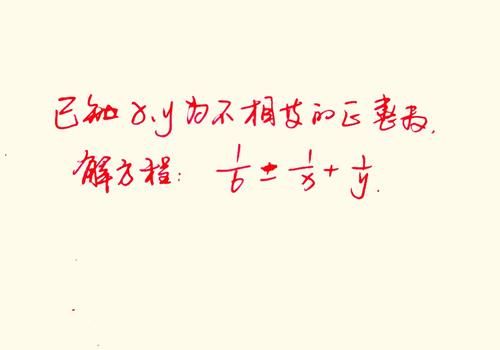 已知x、y为不相等的正整数.
解方程: 1/6 = 1/x + 1/y.